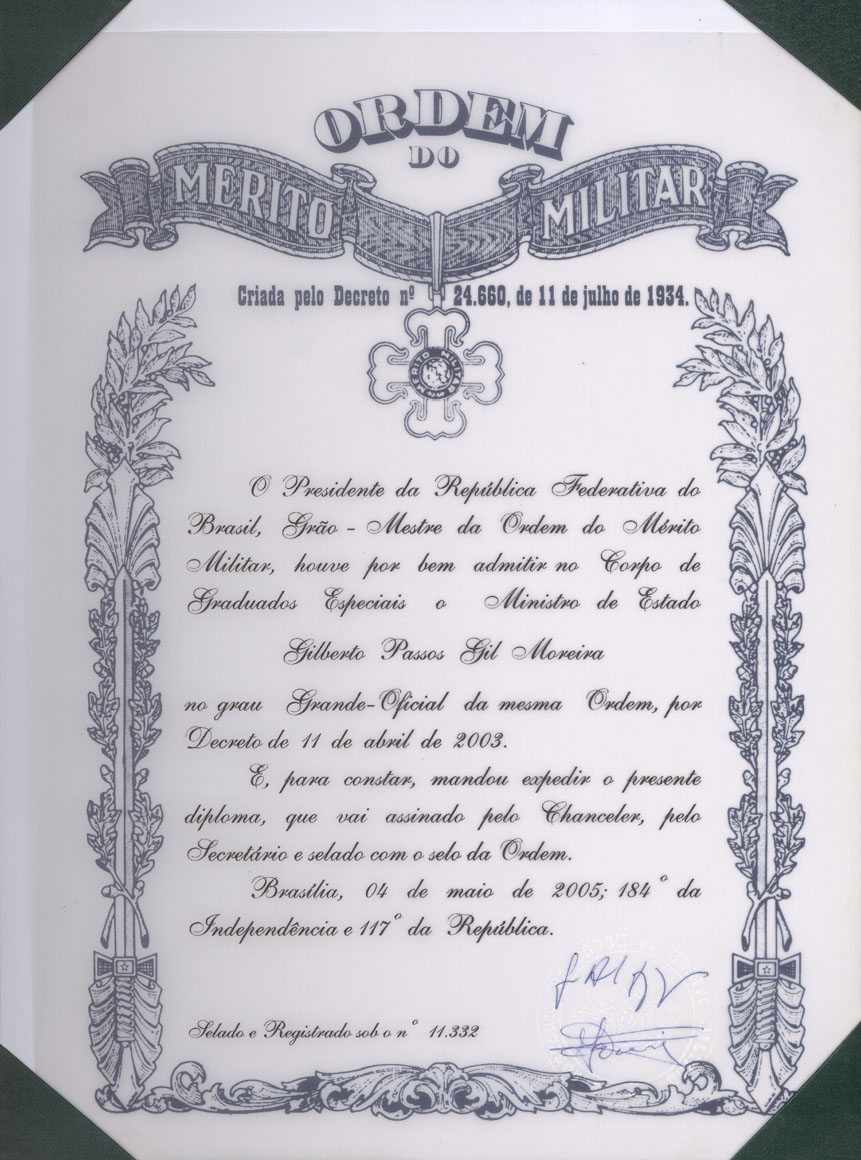 ORDEM
DO
MÉRITO MILITAR
Criada pelo Decreto nº 24.660, de 11 de julho de 1934.
MERITO MILITAR
O Presidente da República Federativa do
Brasil, Grão - Mestre da Ordem do Mérito
Militar, houve por bem admitir no Corpo de
Graduados Especiais o Ministro de Estado
Gilberto Passos Gil Moreira
no grau Grande-Oficial da mesma Ordem, por
Decreto de 11 de abril de 2003.
E, para constar, mandou expedir o presente
diploma, que vai assinado pelo Chanceler, pelo
Secretário e selado com o selo da Ordem.
Brasília, 04 de maio de 2005; 184º da
Independência e 117º da República.
Selado e Registrado sob o nº 11.332